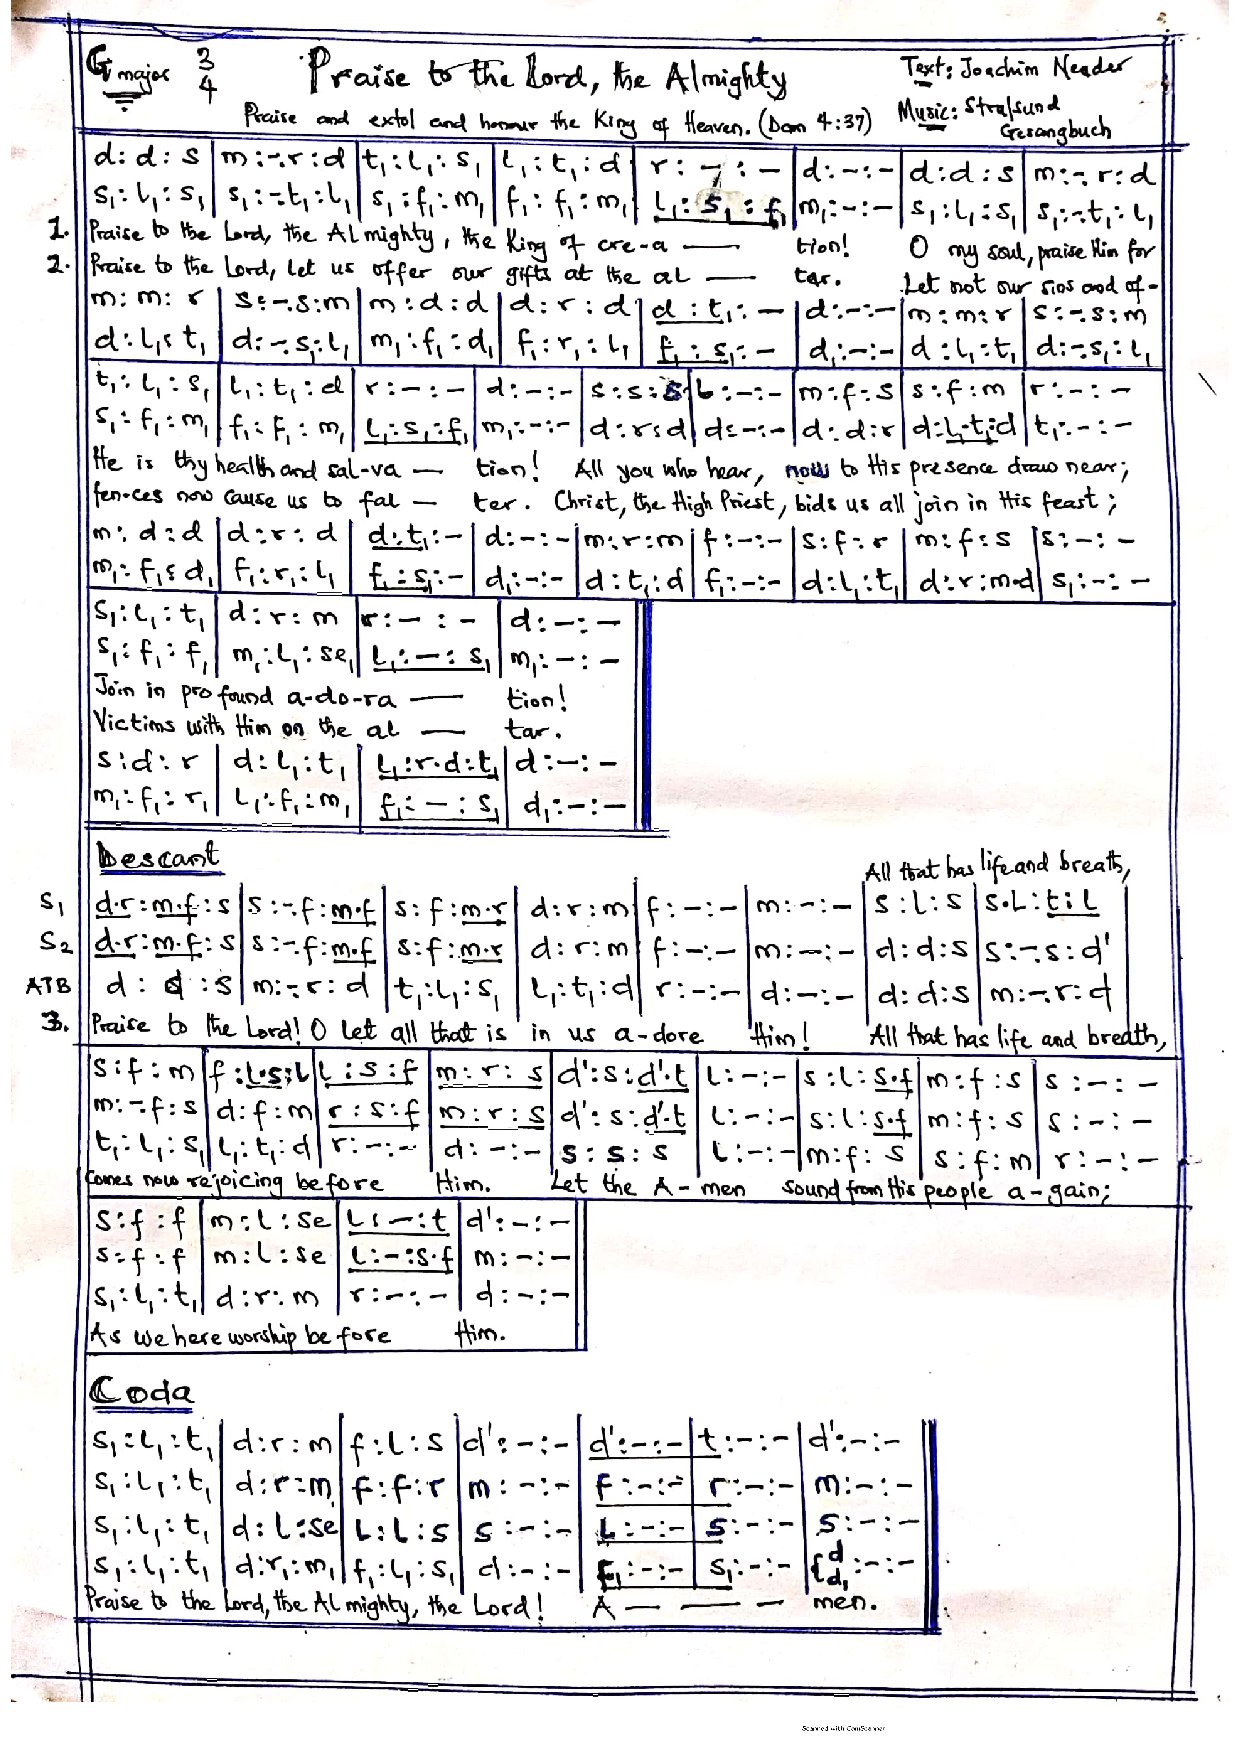 G major 3/4 Praise to the Lord, the Almighty Text: Joachim Neader
Praise and extol and honour the King of Heaven. (Dan 4:37) Music: Stralsund Gesangbuch
d : d : s | m : -. r : d | t₁ : l₁ : s₁ | l₁ : t₁ : d | r : - : - | d : - : - | d : d : s | m : -. r : d
s₁ : l₁ : s₁ | s₁ : -. t₁ : l₁ | s₁ : f₁ : m₁ | f₁ : f₁ : m₁ | l₁ : s₁ : f₁ | m₁ : - : - | s₁ : l₁ : s₁ | s₁ : -. t₁ : l₁
1. Praise to the Lord, the Almighty, the King of cre-a — tion! O my soul, praise Him for
2. Praise to the Lord, let us offer our gifts at the al — tar. Let not our sins and of-
m : m : r | s : -. s : m | m : d : d | d : r : d | d : t₁ : - | d : - : - | m : m : r | s : -. s : m
d : l₁ : t₁ | d : -. s₁ : l₁ | m₁ : f₁ : d₁ | f₁ : r₁ : l₁ | f₁ : s₁ : - | d₁ : - : - | d : l₁ : t₁ | d : -. s₁ : l₁
t₁ : l₁ : s₁ | l₁ : t₁ : d | r : - : - | d : - : - | s : s : s | l : - : - | m : f : s | s : f : m | r : - : -
s₁ : f₁ : m₁ | f₁ : f₁ : m₁ | l₁ : s₁ : f₁ | m₁ : - : - | d : r : d | d : - : - | d : d : r | d : l₁ . t₁ : d | t₁ : - : -
He is thy health and sal-va — tion! All you who hear, now to His presence draw near;
fen-ces now cause us to fal — ter. Christ, the High Priest, bids us all join in His feast;
m : d : d | d : r : d | d : t₁ : - | d : - : - | m : r : m | f : - : - | s : f : r | m : f : s | s : - : -
m₁ : f₁ : d₁ | f₁ : r₁ : l₁ | f₁ : s₁ : - | d₁ : - : - | d : t₁ : d | f₁ : - : - | d : l₁ : t₁ | d : r : m.d | s₁ : - : -
s₁ : l₁ : t₁ | d : r : m | r : - : - | d : - : -
s₁ : f₁ : f₁ | m₁ : l₁ : se₁ | l₁ : - : s₁ | m₁ : - : -
Join in profound a-do-ra — tion!
Victims with Him on the al — tar.
s : d : r | d : l₁ : t₁ | l₁ : r.d : t₁ | d : - : -
m₁ : f₁ : r₁ | l₁ : f₁ : m₁ | f₁ : - : s₁ | d₁ : - : -
Descant
All that has life and breath,
S₁ d.r : m.f : s | s : -. f : m.f | s : f : m.r | d : r : m | f : - : - | m : - : - | s : l : s | s.l : t : l
S₂ d.r : m.f : s | s : -. f : m.f | s : f : m.r | d : r : m | f : - : - | m : - : - | d : d : s | s : -. s : d'
ATB d : d : s | m : -. r : d | t₁ : l₁ : s₁ | l₁ : t₁ : d | r : - : - | d : - : - | d : d : s | m : -. r : d
3. Praise to the Lord! O let all that is in us a-dore Him! All that has life and breath,
s : f : m | f : l.s : l | l : s : f | m : r : s | d' : s : d'.t | l : - : - | s : l : s.f | m : f : s | s : - : -
m : -. f : s | d : f : m | r : s : f | m : r : s | d' : s : d'.t | l : - : - | s : l : s.f | m : f : s | s : - : -
t₁ : l₁ : s₁ | l₁ : t₁ : d | r : - : - | d : - : - | s : s : s | l : - : - | m : f : s | s : f : m | r : - : -
Comes now rejoicing before Him. Let the A-men sound from His people a-gain;
s : f : f | m : l : se | l : - : t | d' : - : -
s : f : f | m : l : se | l : - : s.f | m : - : -
s₁ : l₁ : t₁ | d : r : m | r : - : - | d : - : -
As we here worship before Him.
Coda
s₁ : l₁ : t₁ | d : r : m | f : l : s | d' : - : - | d' : - : - | t : - : - | d' : - : -
s₁ : l₁ : t₁ | d : r : m | f : f : r | m : - : - | f : - : - | r : - : - | m : - : -
s₁ : l₁ : t₁ | d : l : se | l : l : s | s : - : - | l : - : - | s : - : - | s : - : -
s₁ : l₁ : t₁ | d : r₁ : m₁ | f₁ : l₁ : s₁ | d : - : - | f₁ : - : - | s₁ : - : - | {d d₁ : - : -
Praise to the Lord, the Almighty, the Lord! A — — — men.
Scanned with CamScanner